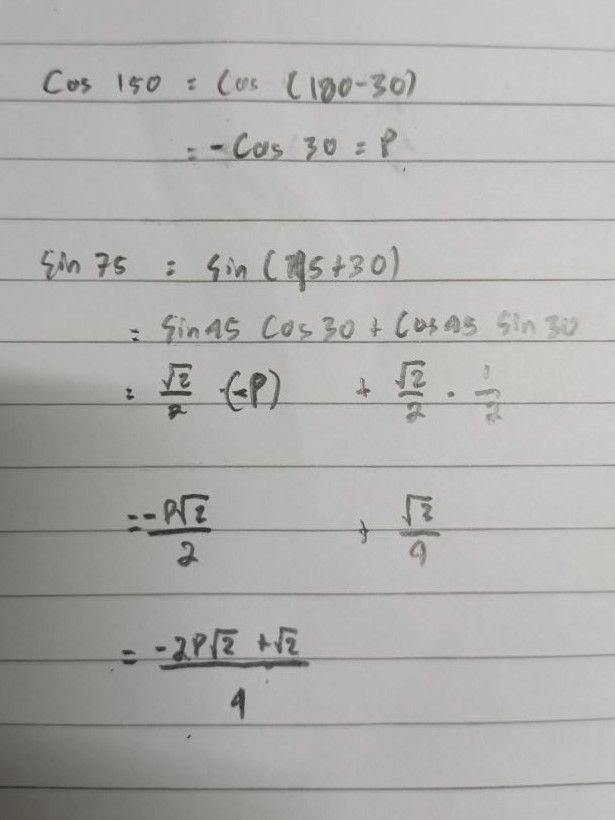 Cos 150 = Cos (180-30)
= -Cos 30 = P
Sin 75 = Sin (45+30)
= Sin 45 Cos 30 + Cos 45 Sin 30
= √2/2 · (-P) + √2/2 · 1/2
= -P√2/2 + √2/4
= -2P√2 + √2/4